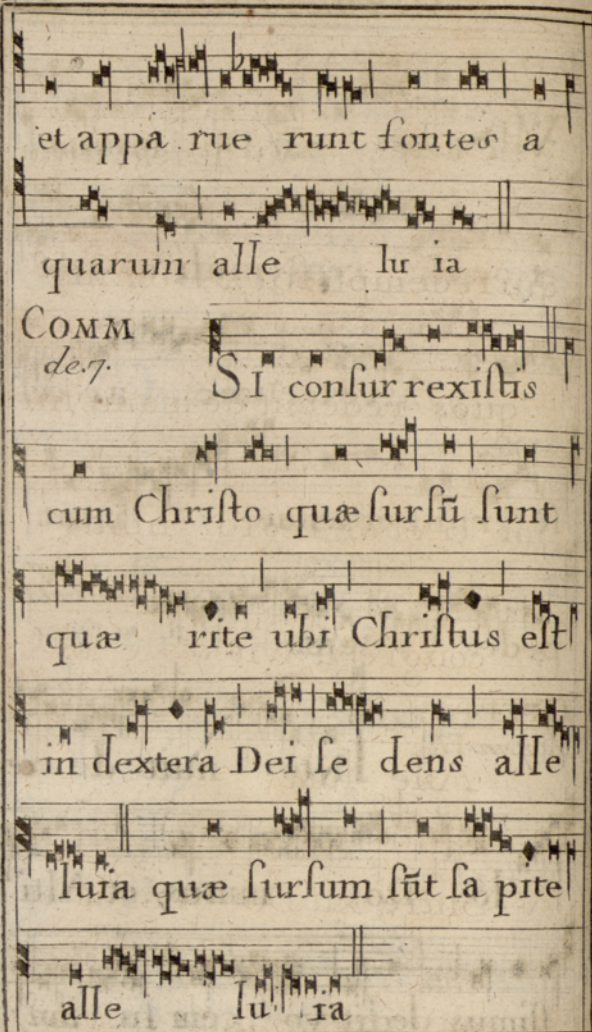 et appa rue runt fontes a
quarum alle lu ia
COMM
de.7.
SI conſur rexiſtis
cum Chriſto quæ ſurſũ ſunt
quæ rite ubi Chriſtus eſt
in dextera Dei ſe dens alle
luia quæ ſurſum ſũt ſa pite
alle lu ia